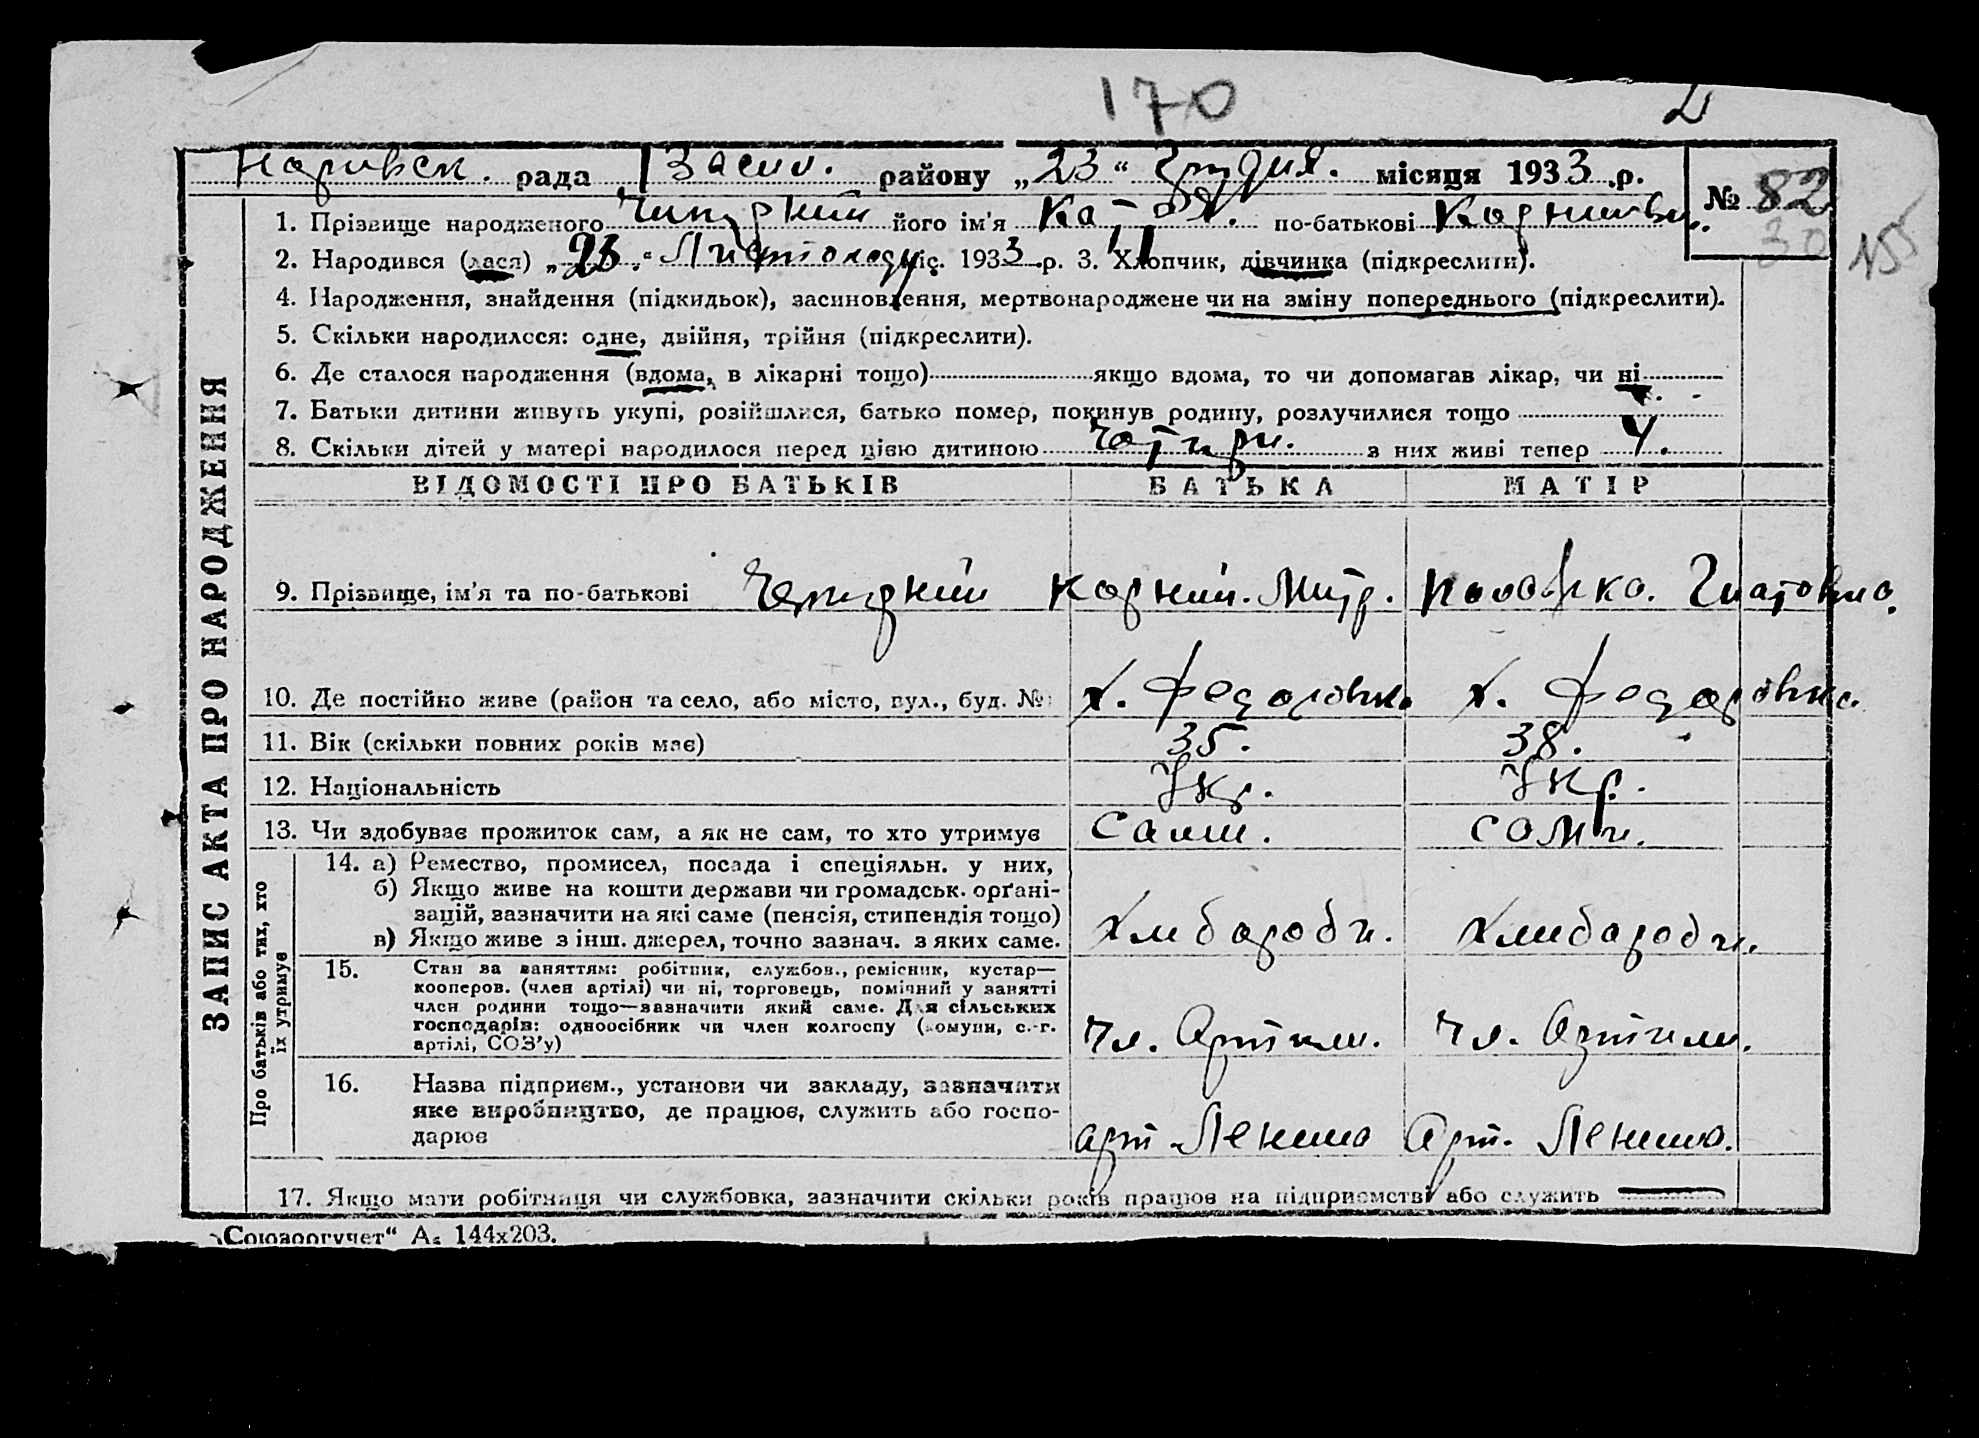 170
рада Засул. району „23“ Грудня. місяця 1933 р. № 82
30
155
1. Прізвище народженого його ім'я Катря. по-батькові
2. Народився (лася) „23“ Листопаду міс. 1933 р. 3. Хлопчик, дівчинка (підкреслити).
4. Народження, знайдення (підкидьок), засиновлення, мертвонароджене чи на зміну попереднього (підкреслити).
5. Скільки народилося: одне, двійня, трійня (підкреслити).
6. Де сталося народження (вдома, в лікарні тощо) якщо вдома, то чи допомагав лікар, чи ні
7. Батьки дитини живуть укупі, розійшлися, батько помер, покинув родину, розлучилися тощо
8. Скільки дітей у матері народилося перед цією дитиною чотири. з них живі тепер 4.
ВІДОМОСТІ ПРО БАТЬКІВ БАТЬКА МАТІР
9. Прізвище, ім'я та по-батькові Корній. Митр.
10. Де постійно живе (район та село, або місто, вул., буд. № х. Федоровка х. Федоровка
11. Вік (скільки повних років має) 35. 38.
12. Національність Укр. Укр.
13. Чи здобуває прожиток сам, а як не сам, то хто утримує Сами. сами.
14. а) Ремество, промисел, посада і спеціяльн. у них,
б) Якщо живе на кошти держави чи громадськ. орґані-
зацій, зазначити на які саме (пенсія, стипендія тощо)
в) Якщо живе з інш. джерел, точно зазнач. з яких саме.
Хлібороби. Хлибороби.
15. Стан за заняттям: робітник, службов., ремісник, кустар—
кооперов. (член артілі) чи ні, торговець, помічний у занятті
член родини тощо—зазначити який саме. Для сільських
господарів: одноосібник чи член колгоспу (комуни, с.-г.
артілі, СОЗ'у)
Чл. Артили. Чл. Артили.
16. Назва підприєм., установи чи закладу, зазначити
яке виробництво, де працює, служить або госпо-
дарює
арт. Ленина Арт. Ленина.
17. Якщо мати робітниця чи службовка, зазначити скільки років працює на підприємстві або служить
ЗАПИС АКТА ПРО НАРОДЖЕННЯ
Про батьків або тих, хто
їх утримує
„Союзоргучет“ А₅ 144х203.